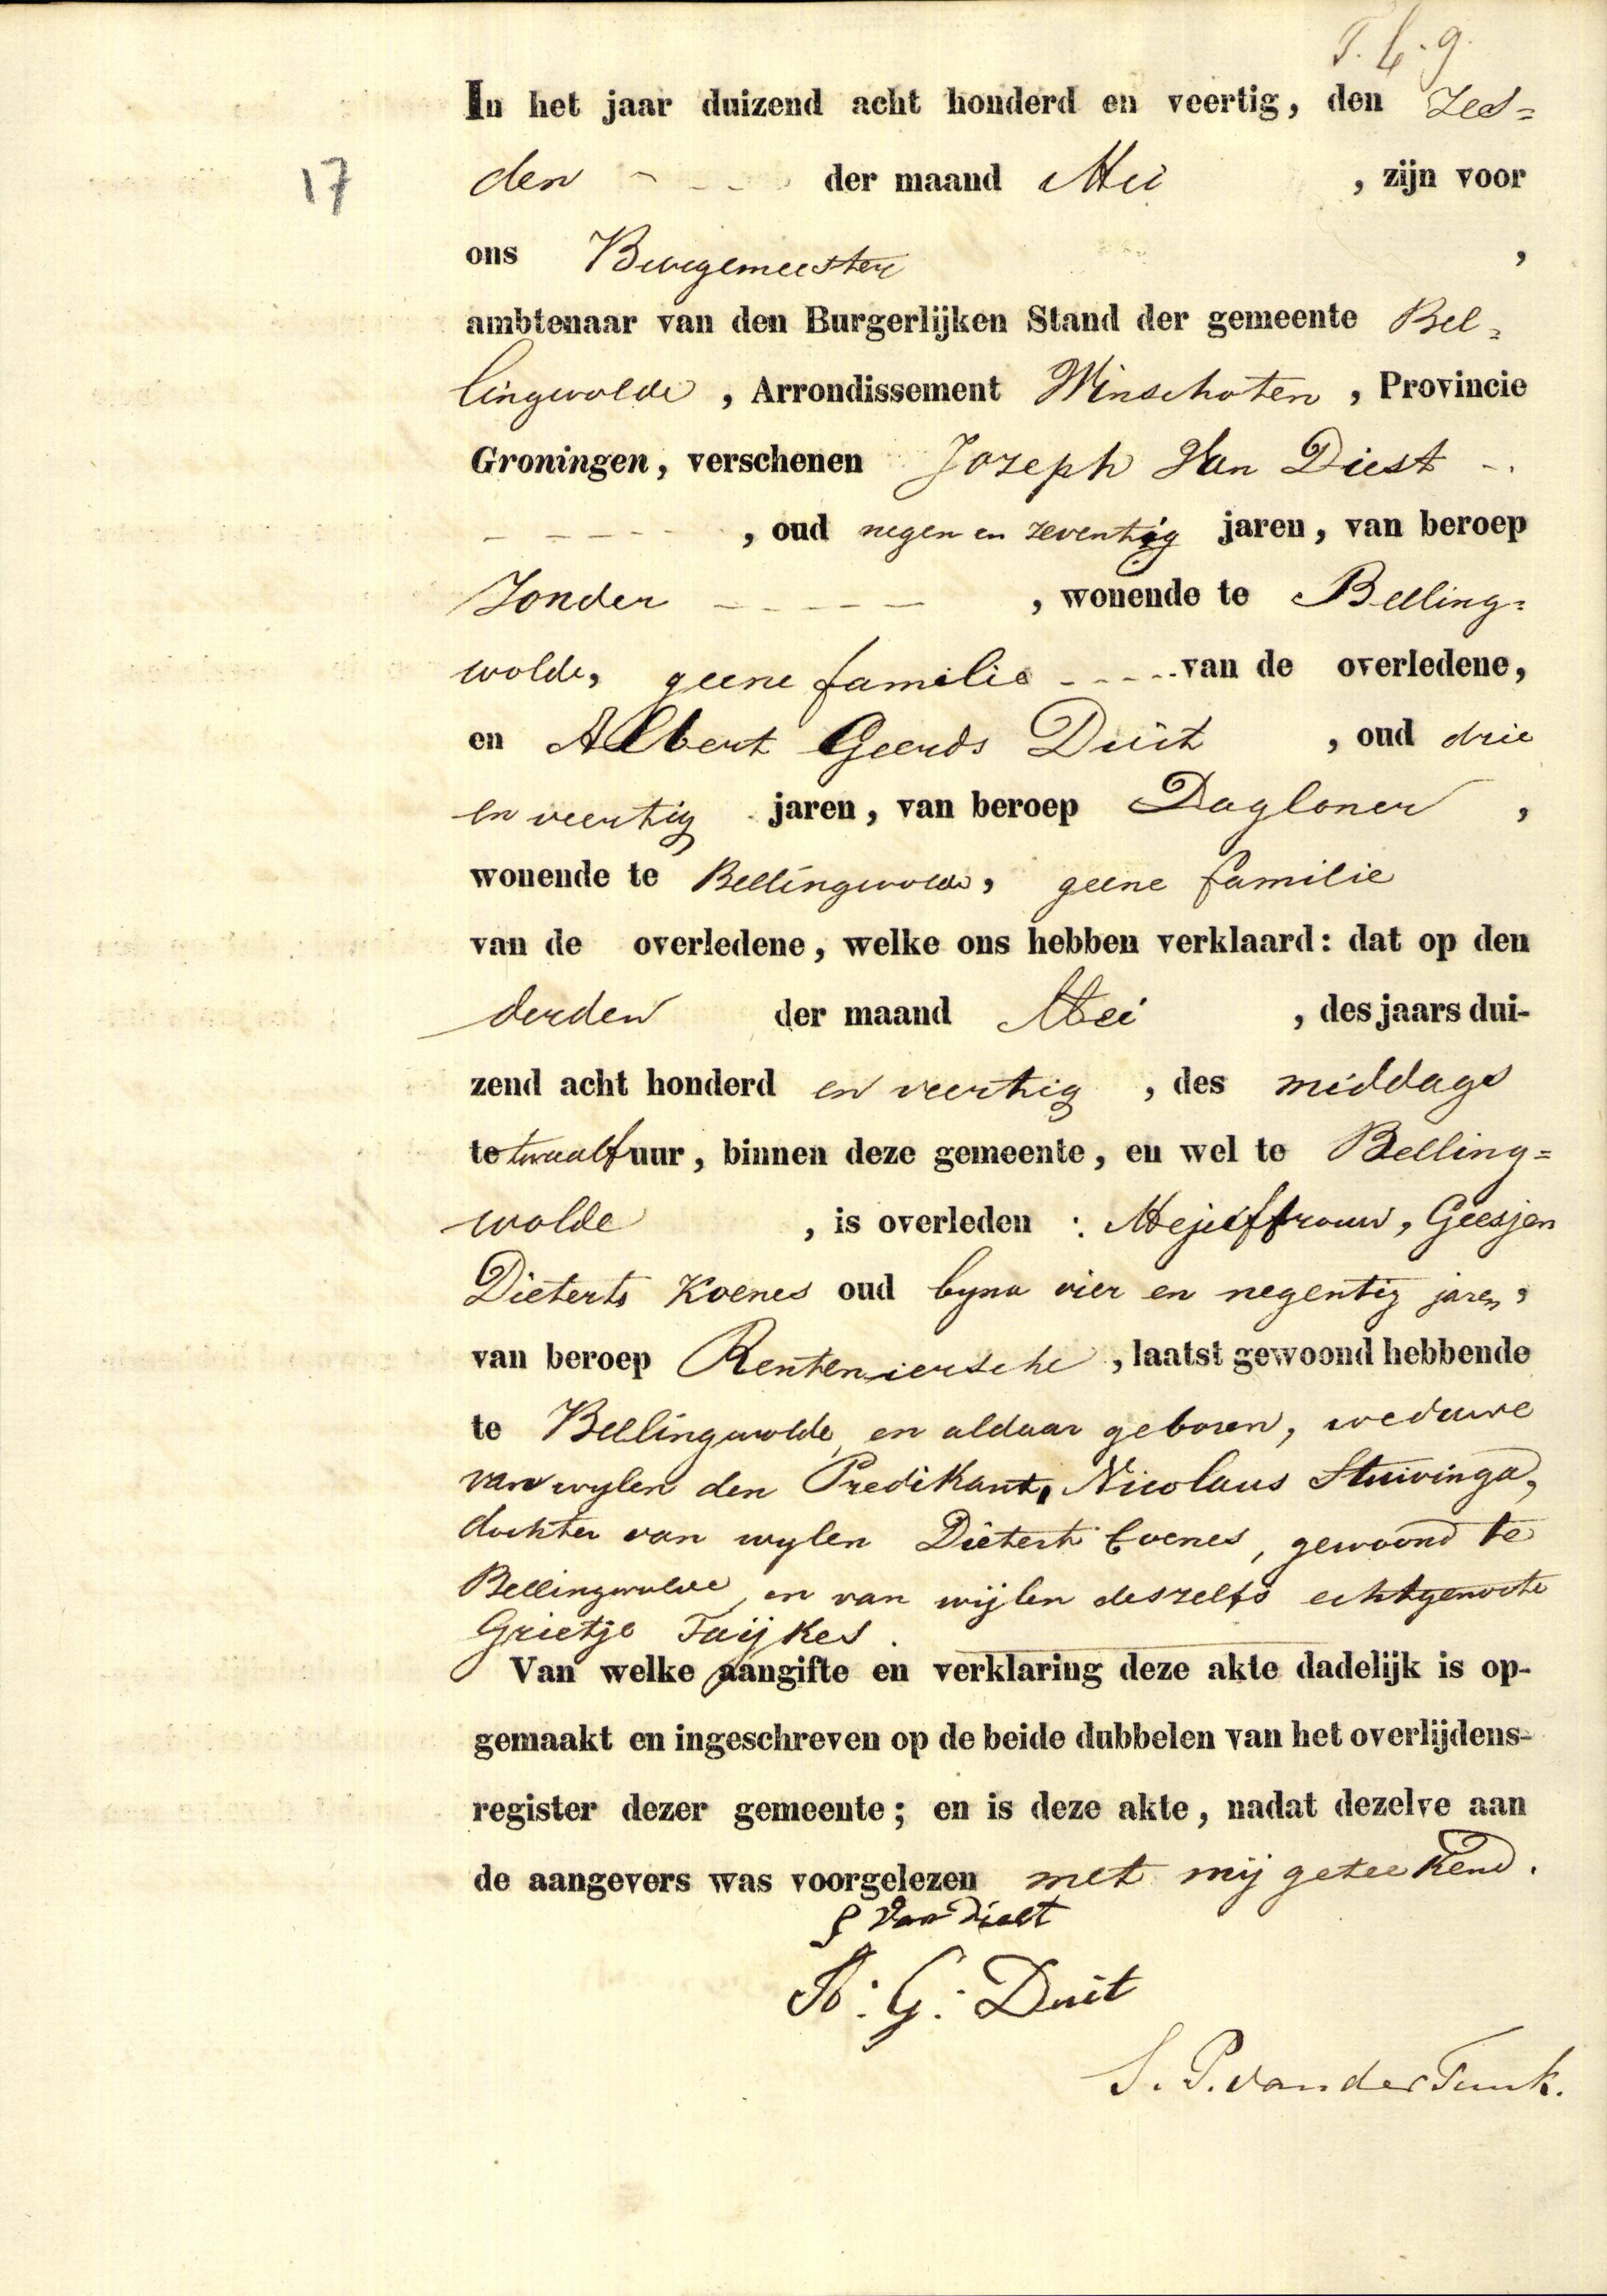 In het jaar duizend acht honderd en veertig, den Zes=
17
den der maand Mei , zijn voor
ons Burgemeester ,
ambtenaar van den Burgerlijken Stand der gemeente Bel=
lingwolde , Arrondissement Winschoten , Provincie
Groningen, verschenen Jozeph Van Diest
, oud negen en zeventig jaren, van beroep
Zonder , wonende te Belling=
wolde, geene familie van de overledene,
en Albert Geerds Duit , oud drie
en veertig jaren, van beroep Dagloner ,
wonende te Bellingwolde, geene familie
van de overledene, welke ons hebben verklaard: dat op den
derden der maand Mei , des jaars dui-
zend acht honderd en veertig , des middags
te twaalf uur, binnen deze gemeente, en wel te Belling=
wolde , is overleden : Mejuffrouw, Geesjen
Dieterts Koenes oud byna vier en negentig jaren,
van beroep Renteniersche , laatst gewoond hebbende
te Bellingwolde, en aldaar geboren, weduwe
van wylen den Predikant, Nicolaus Stuivinga,
dochter van wylen Dietert Coenes, gewoond te
Bellingwolde, en van wijlen deszelfs echtgenoote
Grietje Tuijkes.
Van welke aangifte en verklaring deze akte dadelijk is op-
gemaakt en ingeschreven op de beide dubbelen van het overlijdens-
register dezer gemeente; en is deze akte, nadat dezelve aan
de aangevers was voorgelezen met mij geteekend.
J Van Diest
A: G: Duit
S. P. van der Tuuk.